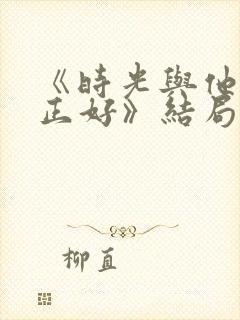 《時光與他
正好》結局
柳直